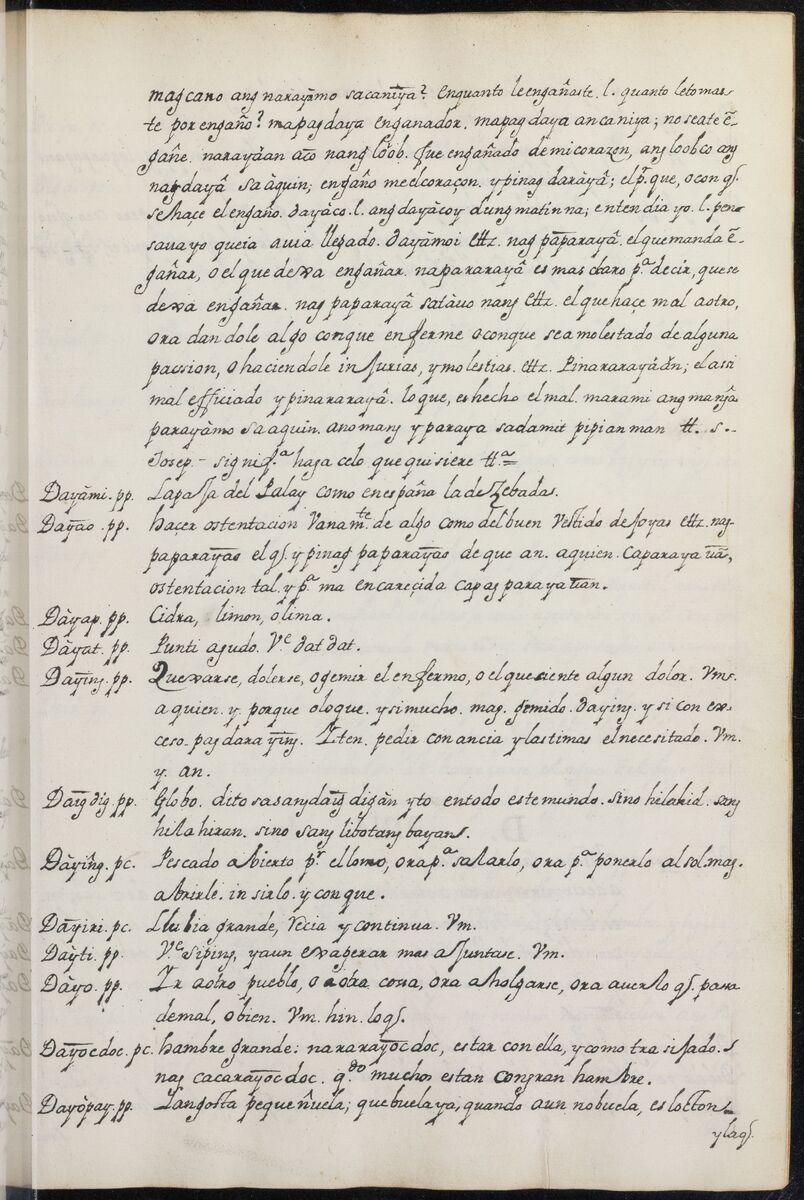 magcano ang narayãmo sacanĩya? enquanto le engañaste. l. quanto letomas
te por engaño? mapagdaya enganador. mapagdaya ancaniya; no seate ẽ-
gañe. narayáan aco nang loób. fue engañado de mi corazon, ang loobco ang
nagdayâ sa àquin; engaño me el coraçon. ypinag darayâ; el pͬ. que, o con qͭ.
se haçe el engaño. dayàco. l. ang dayàcoy dungmatinna; entendia yo. l. pen-
sava yo queia avia llegado. dayàmoi ettz. nag paparayâ. el que manda ẽ-
gañar, o el que dexa engañar. napararayâ es mas claro pᵃ. decir, que se
dexa engañar. nag paparayâ sa tàuo nang ettz. el que haçe mal a otro,
ora dandole algo conque enferme o conque sea molestado de alguna
passion, o haciendole injurias, y molestias. ettz. Pinararayáan; el assi
mal efficiado ypinararayâ. lo que, es hecho el mal. marami ang manga
parayàmo sa aquin. anomang yparaya sa damit pipianman tt. s.-
Josep.- signifᵃ. haga celo que quisiere ttᵃ=
Dayàmi. pp. La paja del Palay como en españa la de Zebadas.
Dayão. pp. haçer ostentacion Vanamᵗᵉ. de algo como del buen Vestido de joyas ettz. nag-
paparayao el qͭ. y pinag paparayao de que an. a quien. Caparayauãn,
ostentacion tal. y pᵃ. ma encareçida capagparayauan.
Dàyap. pp. Cidra, limon, o lima.
Dàyat. pp. Punti agudo. Vᵉ. dat dat.
Dayĩng. pp. Quexarse, dolerse, o gemir el enfermo, o el que siente algun dolor. Vm.
a quien. y. porque o lo que. y si mucho. mag. gemido. daying. y si con ex-
ceso. pag dara ying. Yten. pedir con ancia y lastimas el necesitado. Vm.
y. an.
Daig dig. pp. Globo. dito sa sangdaig digàn yto en todo este mundo. sino hilahid. sang
hila hiran. sino sang libotang bayans.
Dàyîng. pc. Pescado abierto pͬ. el lomo, ora pᵃ. salarlo, ora pᵃ. ponerlo al sol. mag.
abrirle. in sirlo. y con que.
Dayiri. pc. Llubia grande, recia y continua. Vm.
Dàyti. pp. Vᵉ. Siping, y aun exagerar mas a Juntase. Vm.
Dàyo. pp. Yr a otro pueblo, o a otra cossa, ora a holgarse, ora a verlo qͭ. passa
de mal, o bien. Vm. hin. lo qͭ.
Dayocdoc. pc. hambre grande: nararayocdoc, estar con ella, y como trasijado. s
nag cacarayocdoc. qᵈᵒ muchos estan con gran hambre.
Dayòpay. pp. Langosta pequeñuela; que buela ya, quando aun no buela, es locton-
y laqͭ.